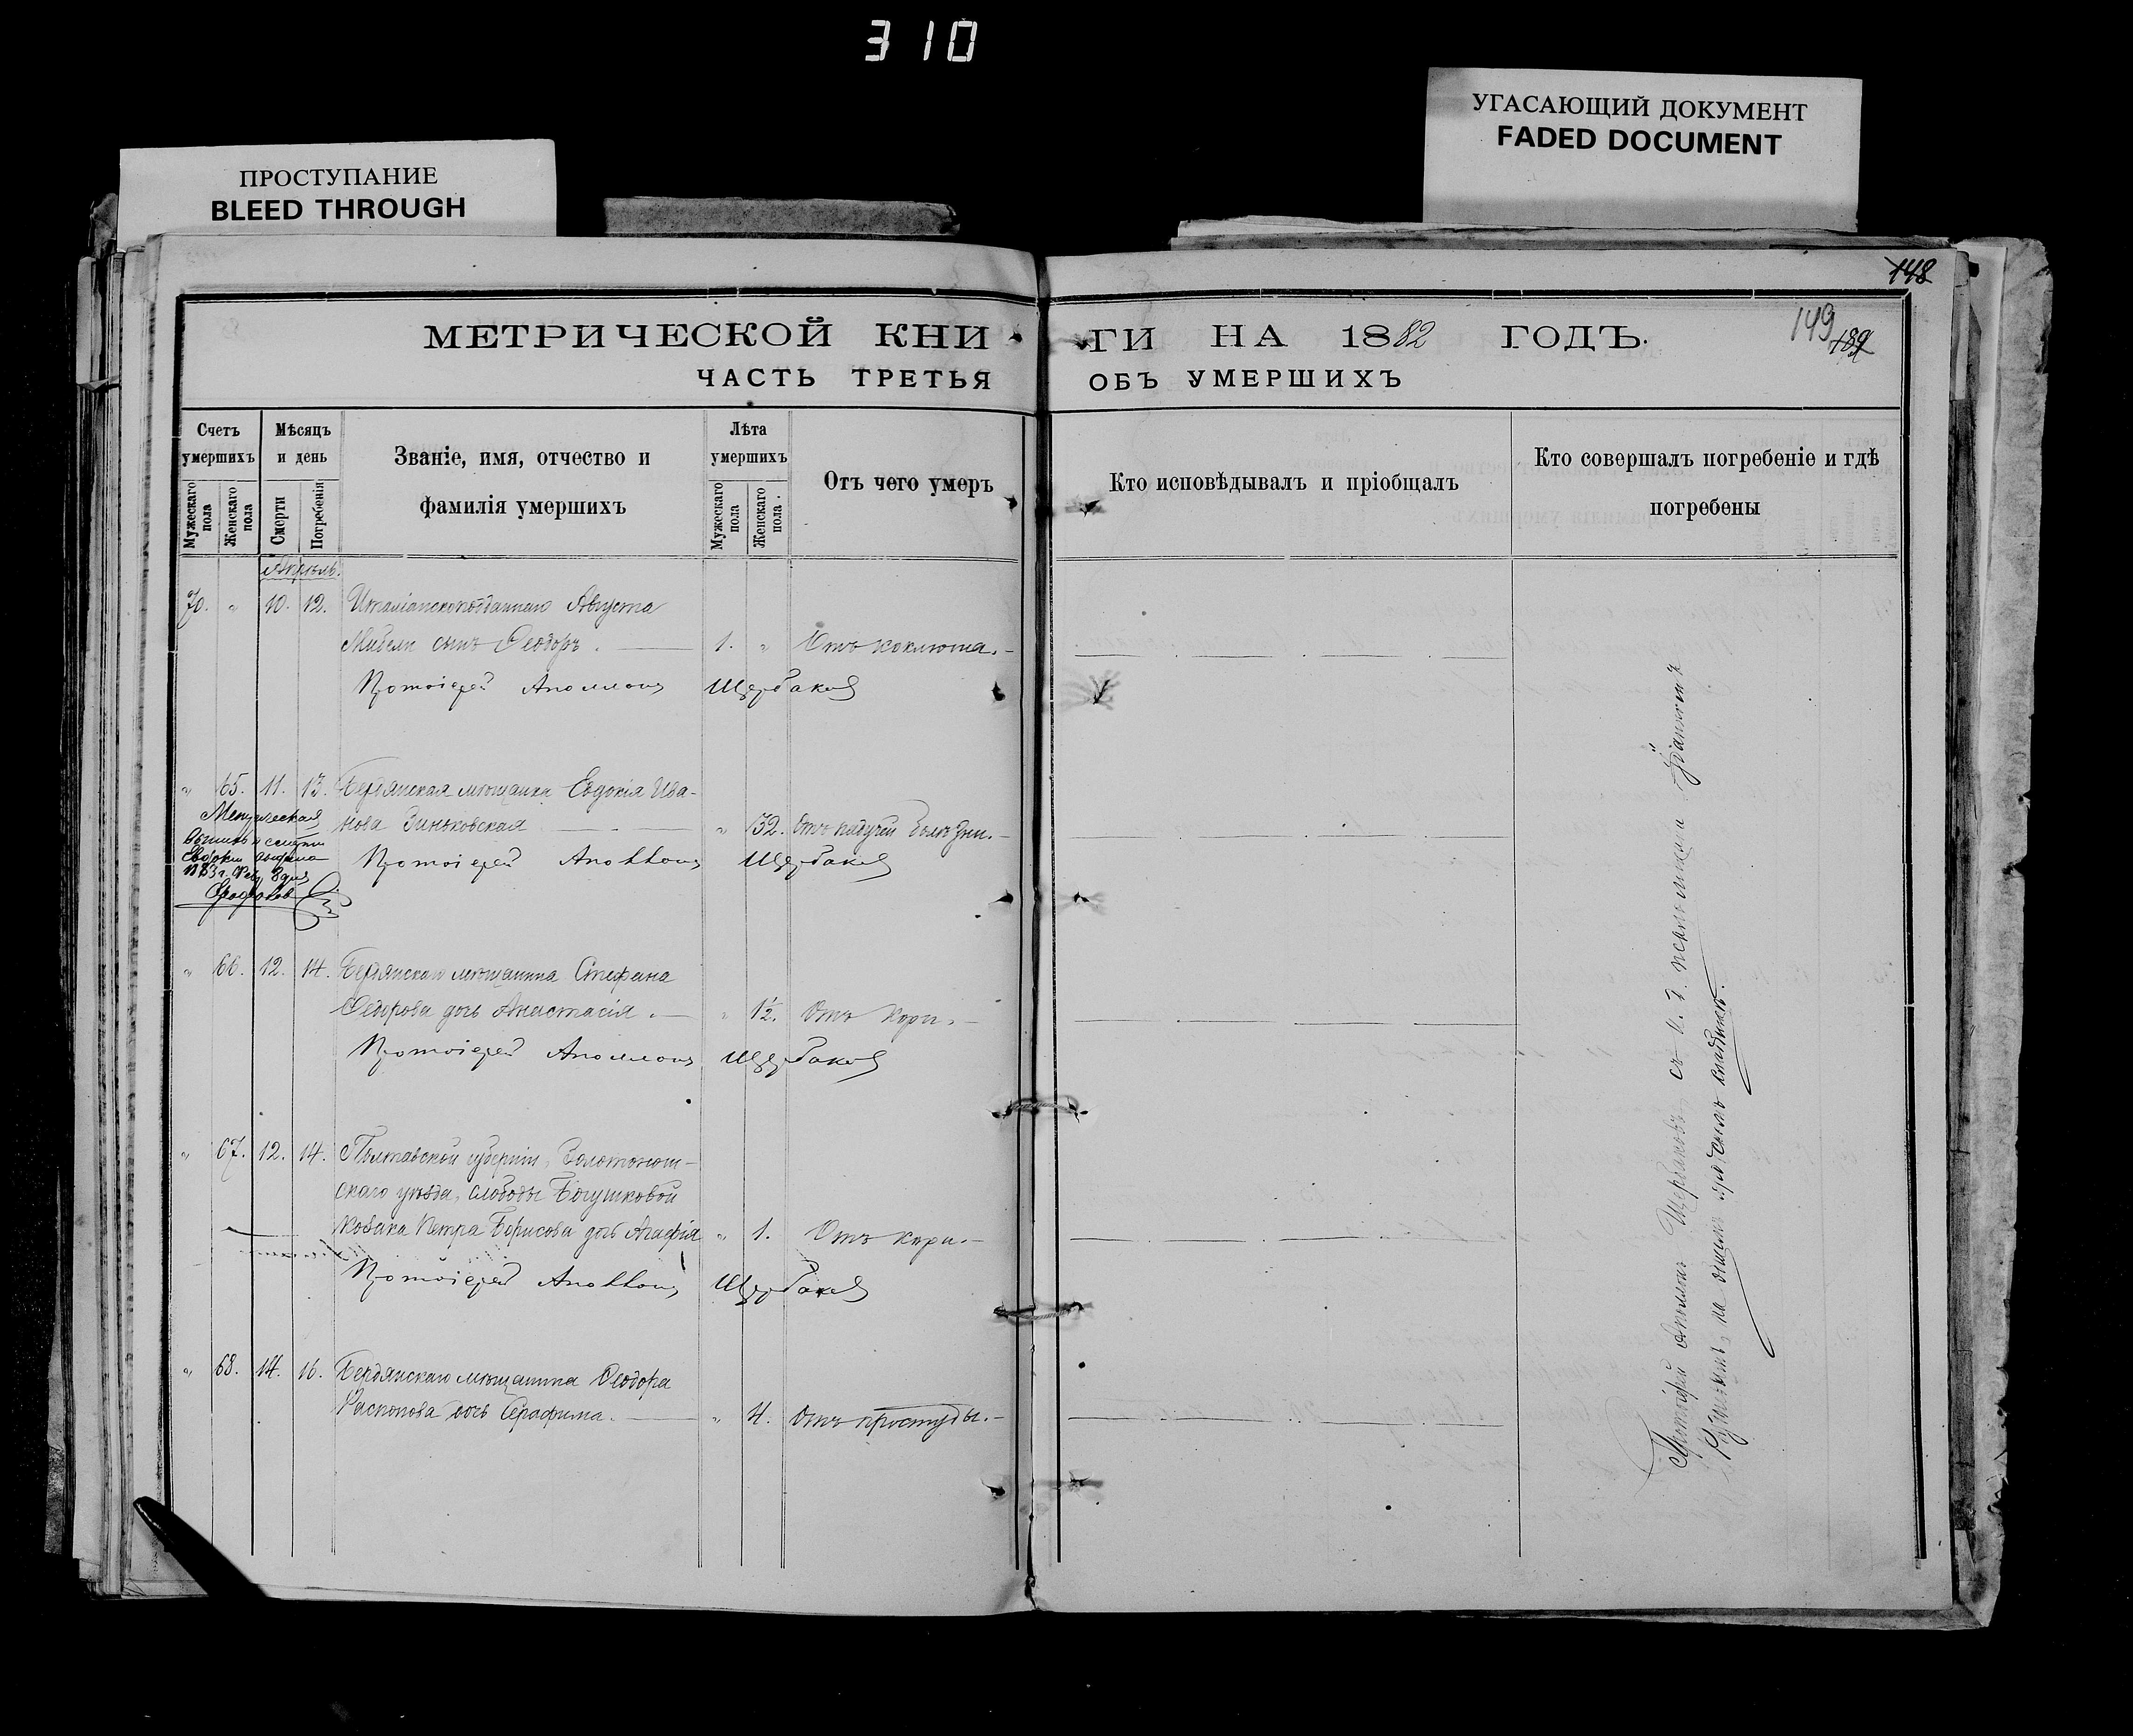 310
УГАСАЮЩИЙ ДОКУМЕНТ
FADED DOCUMENT
ПРОСТУПАНИЕ
BLEED THROUGH
148
149
189
МЕТРИЧЕСКОЙ КНИ
ГИ НА 1882 ГОДЪ.
ЧАСТЬ ТРЕТЬЯ
ОБЪ УМЕРШИХЪ
Счетъ умершихъ
Мужескаго пола
Женскаго пола
Мѣсяцъ и день
Смерти
Погребенія
Званіе, имя, отчество и
фамилія умершихъ
Лѣта умершихъ
Мужескаго пола
Женскаго пола.
Отъ чего умеръ
Кто исповѣдывалъ и пріобщалъ
Кто совершалъ погребеніе и гдѣ
погребены
Апрѣль.
70. " 10. 12. Италіанскоподданнаго Августа
сынъ Ѳеодоръ. 1. " Отъ коклюша.
Протоіерей Аполлонъ Щербаковъ
" 65. 11. 13. Бердянская мѣщанка Евдокія Ива-
нова Зиньковская " 32. Отъ падучей болѣзни.
Протоіерей Аполлонъ Щербаковъ
" 66. 12. 14. Бердянскаго мѣщанина Стефана
Ѳедорова дочь Анастасія. " 1½. Отъ кори.
Протоіерей Аполлонъ Щербаковъ
" 67. 12. 14. Полтавской губерніи, Золотонош-
скаго уѣзда, слободы Богушковой
козака Петра Борисова дочь Агафія " 1. Отъ кори.
Протоіерей Аполлонъ Щербаковъ
" 68. 14. 16. Бердянскаго мѣщанина Ѳеодора
Распопова дочь Серафима. " 4. Отъ простуды.
Протоіерей Аполлонъ Щербаковъ съ и. д. псаломщика
на общемъ градскомъ кладбищѣ.